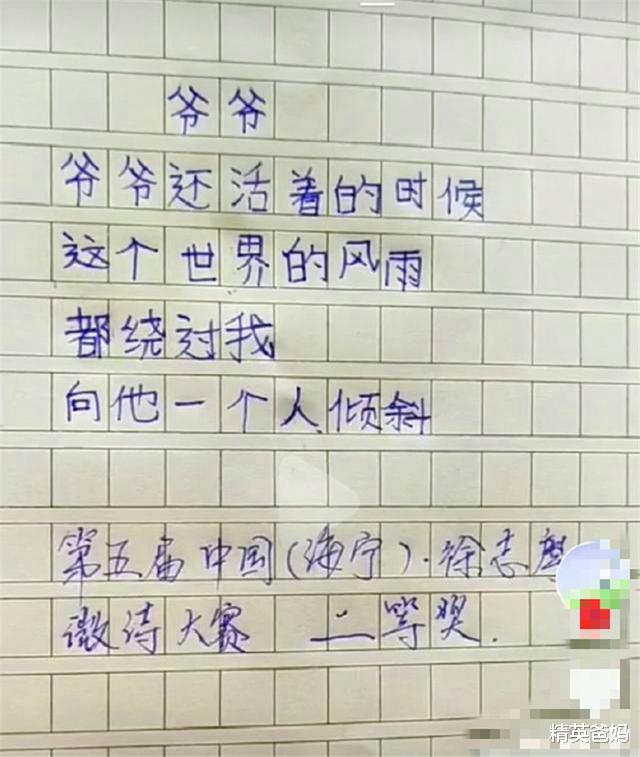 爷爷
爷爷还活着的时候
这个世界的风雨
都绕过我
向他一个人倾斜
第五届中国(海宁)·徐志摩
微诗大赛 二等奖.
精英爸妈